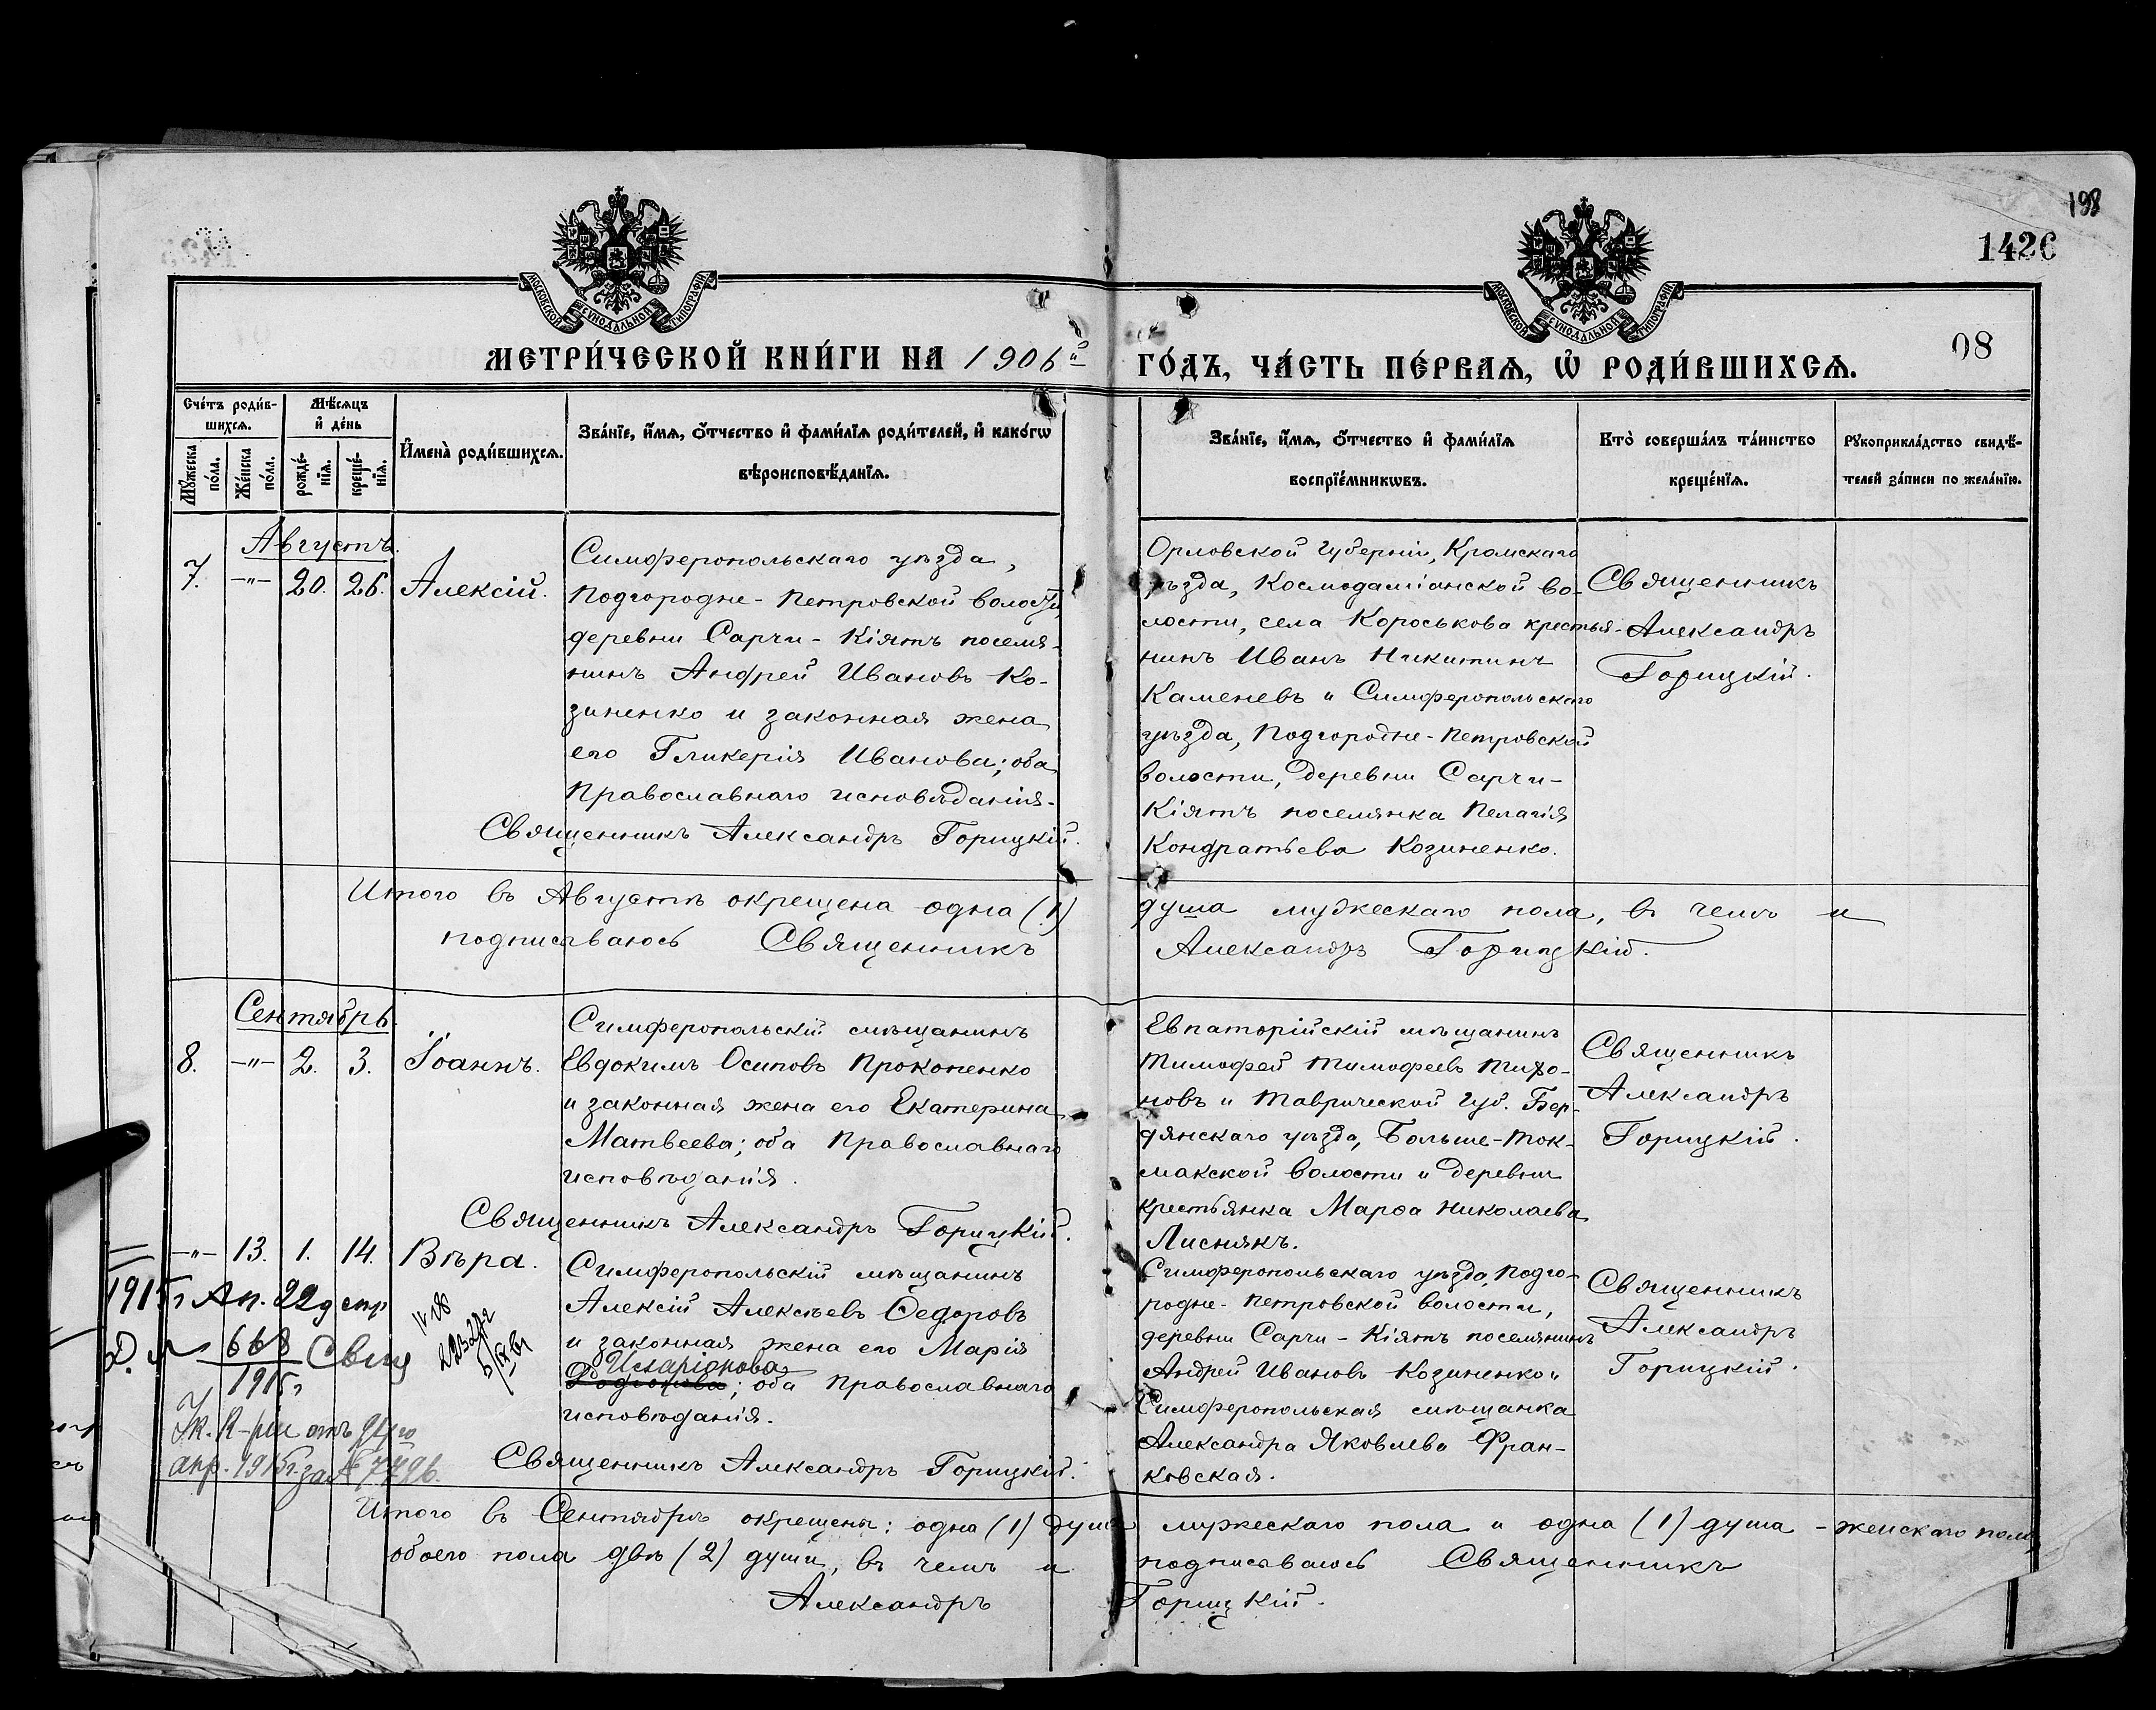 198
1426
08
МОСКОВСКОЙ СѴНОДАЛЬНОЙ ТИПОГРАФІИ
МОСКОВСКОЙ СѴНОДАЛЬНОЙ ТИПОГРАФІИ
МЕТРИ́ЧЕСКОЙ КНИ́ГИ НА 1906й
ГО́ДЪ, ЧА́СТЬ ПЕ́РВАѦ, Ѿ РОДИ́ВШИХСѦ.
Сче́тъ роди́в-
шихсѧ.
Мꙋжеска по́ла.
Же́нска по́ла.
Мѣ́сѧцъ
и҆ де́нь
рожде́-
нїѧ.
креще́-
нїѧ.
И҆мена̀ роди́вшихсѧ.
Зва́нїе, и҆́мѧ, ѻ҆́тчество и҆ фами́лїѧ роди́телей, и҆ како́гѡ
вѣроисповѣ́данїѧ.
Зва́нїе, и҆́мѧ, ѻ҆́тчество и҆ фами́лїѧ
воспрїе́мникѡвъ.
Кто̀ соверша́лъ та́инство
креще́нїѧ.
Рꙋкоприкла́дство свидѣ́-
телей за́писи по жела́нїю.
Августъ.
7. —"— 20. 26. Алексій.
Симферопольскаго уѣзда,
Подгородне-Петровской волости,
деревни Сарчи-Кіятъ поселя-
нинъ Андрей Ивановъ Ко-
зиненко и законная жена
его Гликерія Иванова; оба
Православнаго исповѣданія.
Священникъ Александръ Горицкій.
Орловской губерніи, Кромскаго
уѣзда, Космодаміанской во-
лости, села Короськова крестья-
нинъ Иванъ Никитинъ
Каменевъ и Симферопольскаго
уѣзда, Подгородне-Петровской
волости, деревни Сарчи-
Кіятъ поселянка Пелагія
Кондратьева Козиненко.
Священникъ
Александръ
Горицкій.
Итого въ Августѣ окрещена одна (1) душа мужескаго пола, въ чемъ и
подписываюсь Священникъ Александръ Горицкій.
Сентябрь.
8. —"— 2. 3. Іоаннъ.
Симферопольскій мѣщанинъ
Евдокимъ Осиповъ Прокопенко
и законная жена его Екатерина
Матвеева; оба Православнаго
исповѣданія.
Священникъ Александръ Горицкій.
Евпаторійскій мѣщанинъ
Тимофей Тимофеевъ
новъ и Таврической губ. Бер-
дянскаго уѣзда, Больше-Ток-
макской волости и деревни
крестьянка Марѳа Николаева
Лиснякъ.
Священникъ
Александръ
Горицкій.
—"— 13. 1. 14. Вѣра.
Симферопольскій мѣщанинъ
Алексій Алексѣевъ Ѳедоровъ
и законная жена его Марія
Иларіонова
; оба Православнаго
исповѣданія.
Священникъ Александръ Горицкій.
Симферопольскаго уѣзда, Подго-
родне-Петровской волости,
деревни Сарчи-Кіятъ поселянинъ
Андрей Ивановъ Козиненко и
Симферопольская мѣщанка
Александра Яковлева Фран-
ковская.
Священникъ
Александръ
Горицкій.
1915 г Ап. 22
668
1915 г
апр. 1915 г. за № 7796.
Итого въ Сентябрѣ окрещены: одна (1) душа мужескаго пола и одна (1) душа - женскаго пола,
обоего пола двѣ (2) души, въ чемъ и подписываюсь Священникъ
Александръ Горицкій.